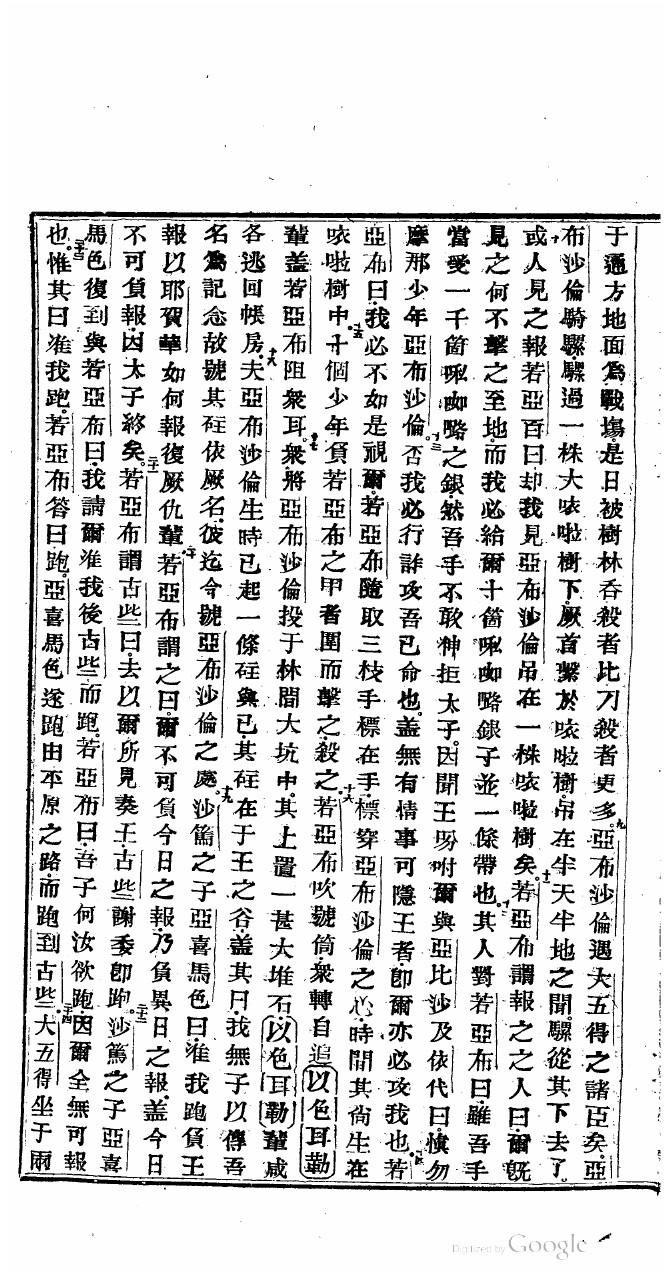 于通方地面爲戰塲是日被樹林呑殺者比刀殺者更多。九亞布沙倫遇大五得之諸臣矣。亞
布沙倫騎騾騾過一株大唊啦樹下厥首繫於唊啦樹吊在半天半地之間騾從其下去了。
十或人見之報若亞百曰却我見亞布沙倫吊在一株唊啦樹矣。十一若亞布謂報之之人曰爾旣
見之何不擊之至地而我必給爾十箇㖠㗎咯銀子並一條帶也。十二其人對若亞布曰雖吾手
當受一千箇㖠㗎咯之銀然吾手不敢神拒太子。因聞王吩咐爾與亞比沙及依代曰愼勿
摩那少年亞布沙倫。十三否我必行詐攻吾己命也。盖無有情事可隱王者卽爾亦必攻我也。十四若
亞布曰我必不如是視爾若亞布隨取三枝手標在手標穿亞布沙倫之心時間其尙生在
唊啦樹中。十五十個少年負若亞布之甲者圍而擊之殺之。十六若亞布吹號筒衆轉自追以色耳勒
輩盖若亞布阻衆耳。十七衆將亞布沙倫投于林間大坑中其上置一甚大堆石以色耳勒輩咸
各逃回帳房。十八夫亞布沙倫生時已起一條砫與己其砫在于王之谷盖其曰我無子以傳吾
名爲記念故號其砫依厥名彼迄今號亞布沙倫之處。十九沙篤之子亞喜馬色曰准我跑負王
報以耶賀華如何報復厥仇輩。二十若亞布謂之曰爾不可負今日之報乃負異日之報盖今日
不可負報因太子終矣。二十一若亞布謂古些曰去以爾所見奏王古些謝委卽跑。二十二沙篤之子亞喜
馬色復到與若亞布曰我請爾准我後古些而跑若亞布曰吾子何汝欲跑因爾全無可報
也。二十三惟其曰准我跑若亞布答曰跑亞喜馬色遂跑由平原之路而跑到古些。二十四大五得坐于兩
Digitized by Google